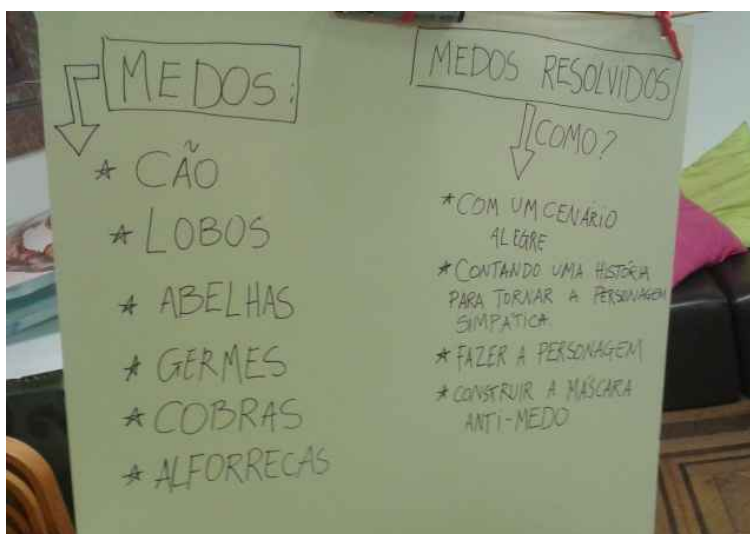 MEDOS:
* CÃO
* LOBOS
* ABELHAS
* GERMES
* COBRAS
* ALFORRECAS
MEDOS RESOLVIDOS
COMO?
* COM UM CENÁRIO
ALEGRE
* CONTANDO UMA HISTÓRIA
PARA TORNAR A PERSONAGEM
SIMPÁTICA.
* FAZER A PERSONAGEM
* CONSTRUIR A MÁSCARA
ANTI-MEDO